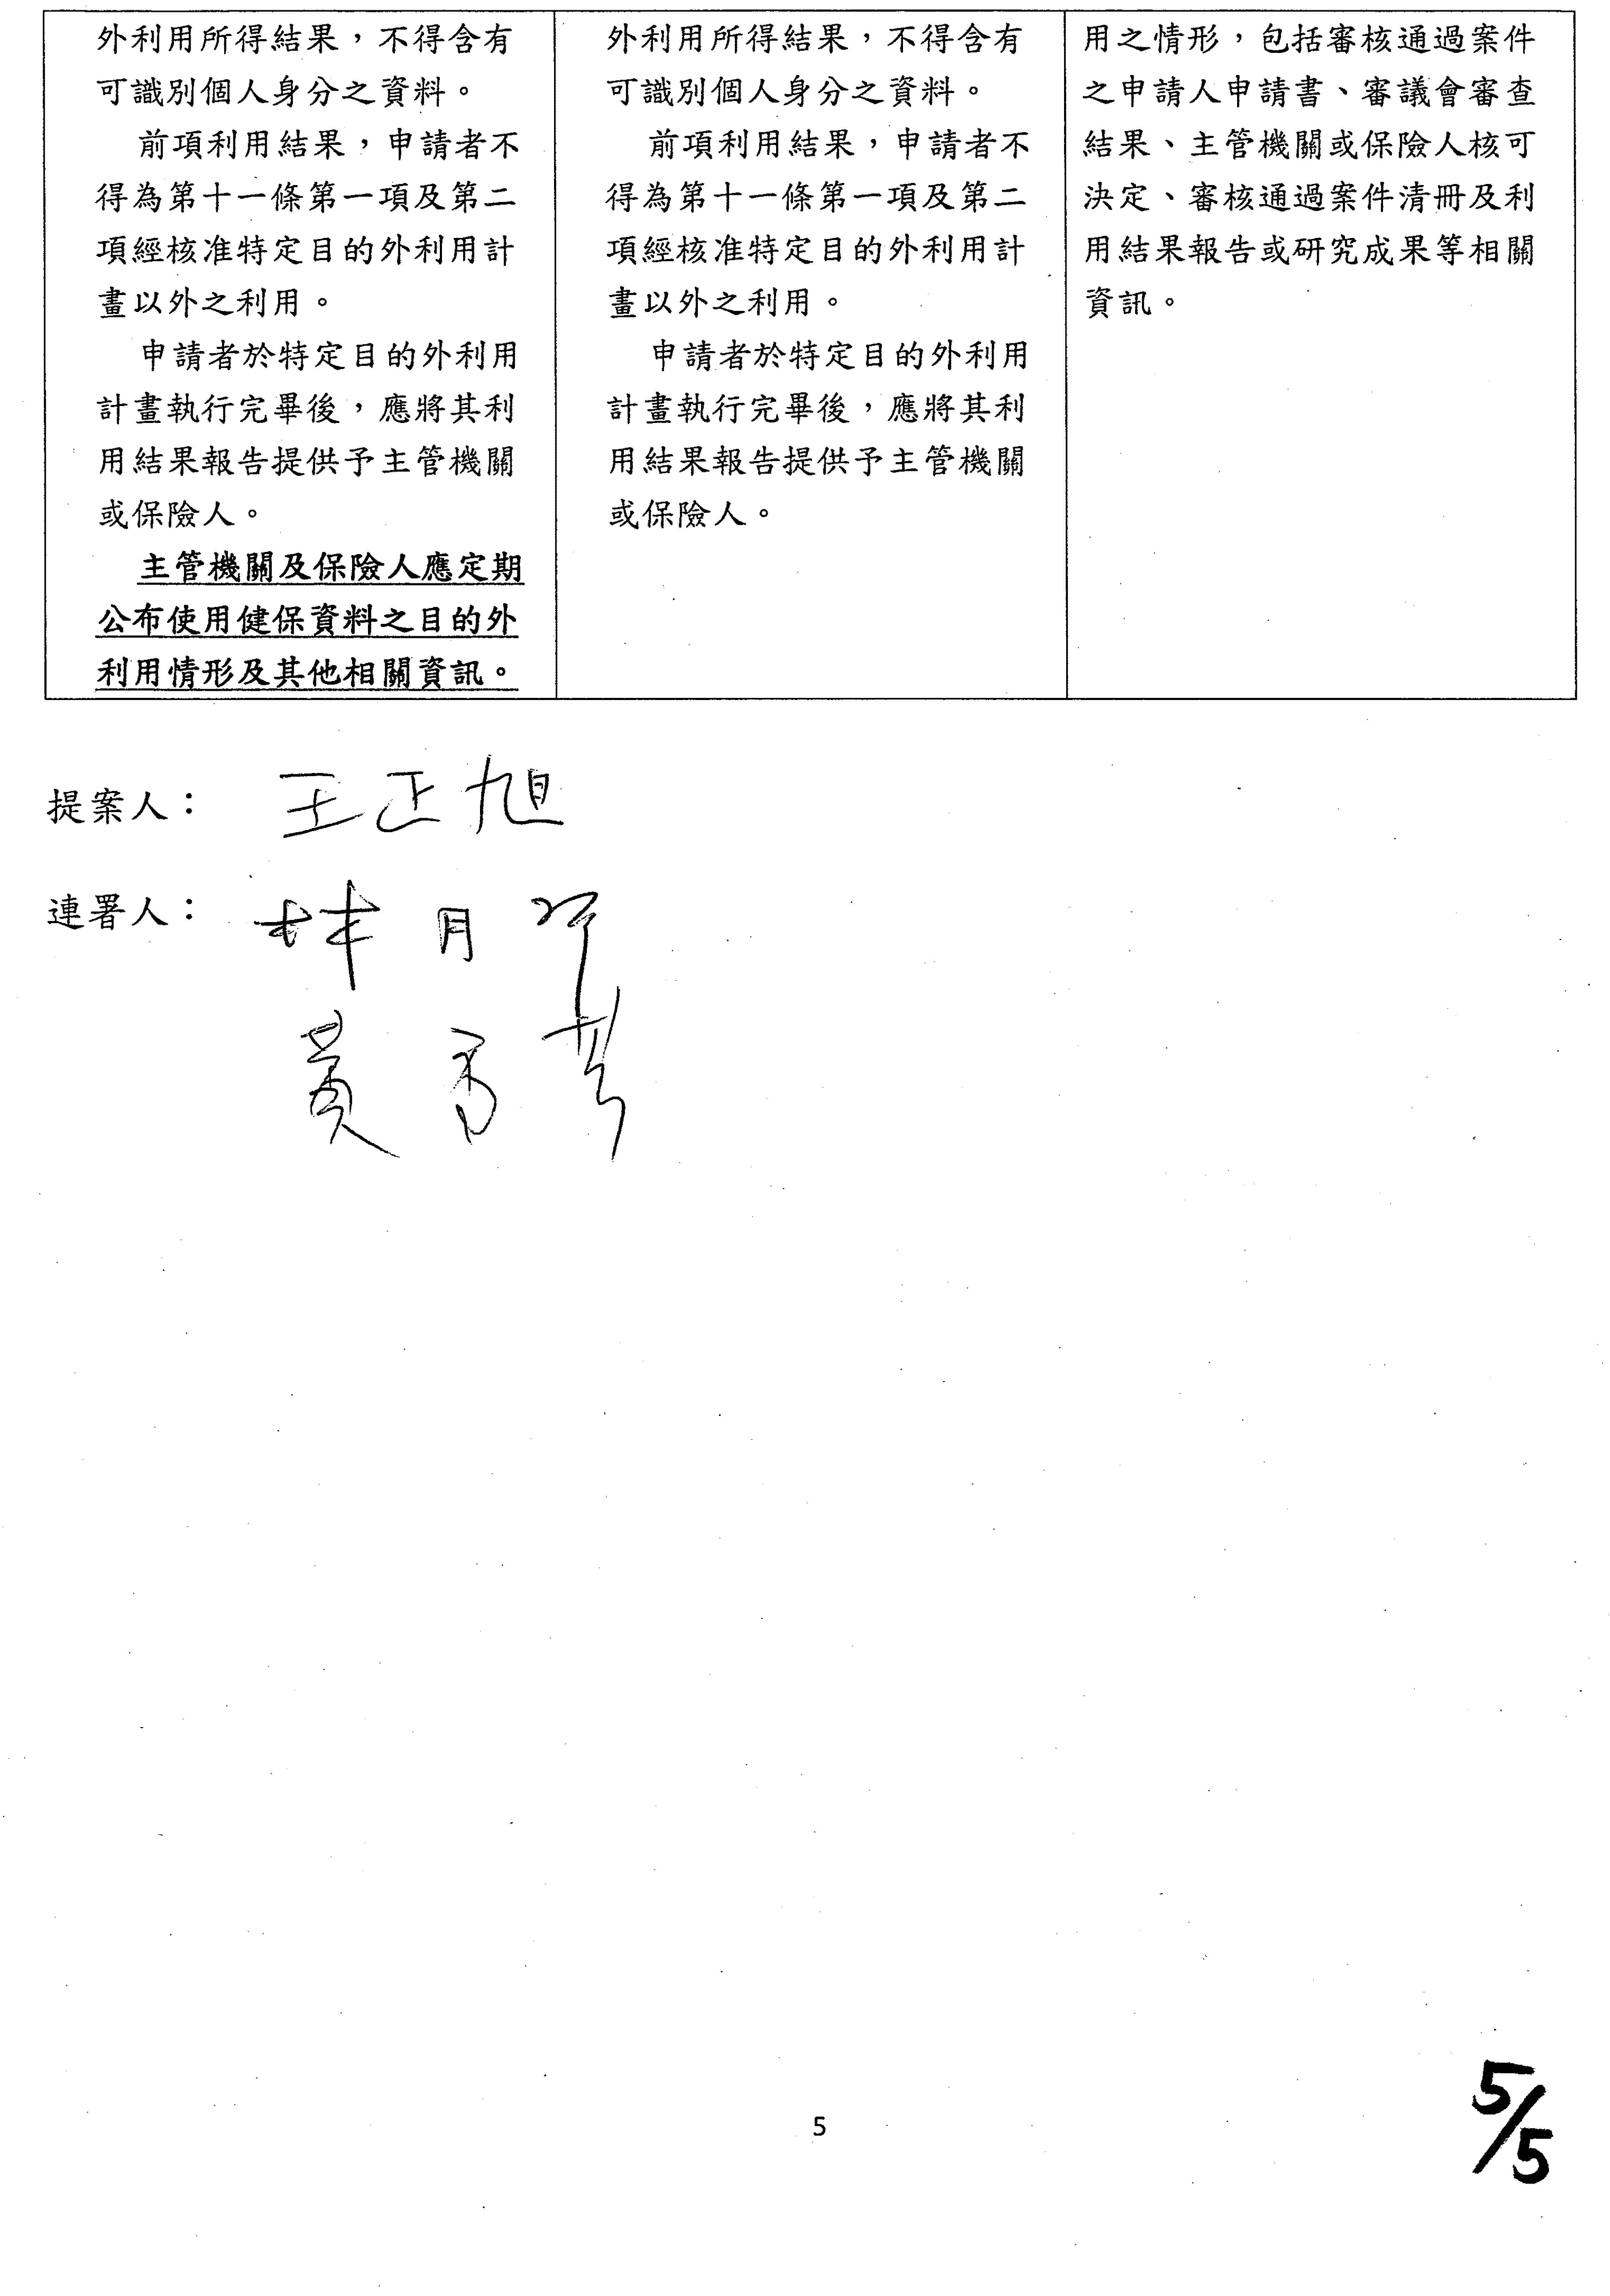 外利用所得結果，不得含有
可識別個人身分之資料。
前項利用結果，申請者不
得為第十一條第一項及第二
項經核准特定目的外利用計
畫以外之利用。
申請者於特定目的外利用
計畫執行完畢後，應將其利
用結果報告提供予主管機關
或保險人。
主管機關及保險人應定期
公布使用健保資料之目的外
利用情形及其他相關資訊。
外利用所得結果，不得含有
可識別個人身分之資料。
前項利用結果，申請者不
得為第十一條第一項及第二
項經核准特定目的外利用計
畫以外之利用。
申請者於特定目的外利用
計畫執行完畢後，應將其利
用結果報告提供予主管機關
或保險人。
用之情形，包括審核通過案件
之申請人申請書、審議會審查
結果、主管機關或保險人核可
決定、審核通過案件清冊及利
用結果報告或研究成果等相關
資訊。
提案人： 王正旭
連署人： 林月琴
黃秀芳
5
5/5